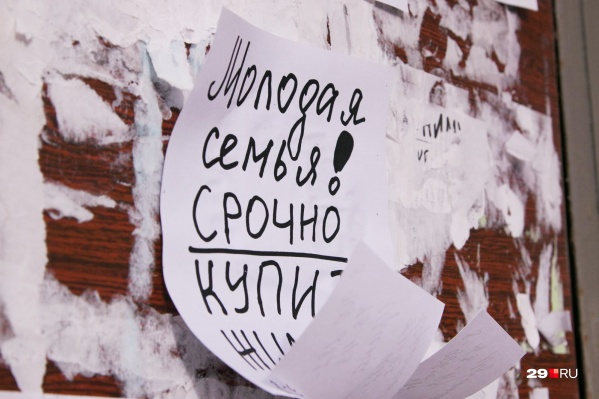 Молодая
семья!
СРОЧНО
КУПИ
ЖИ
29.RU